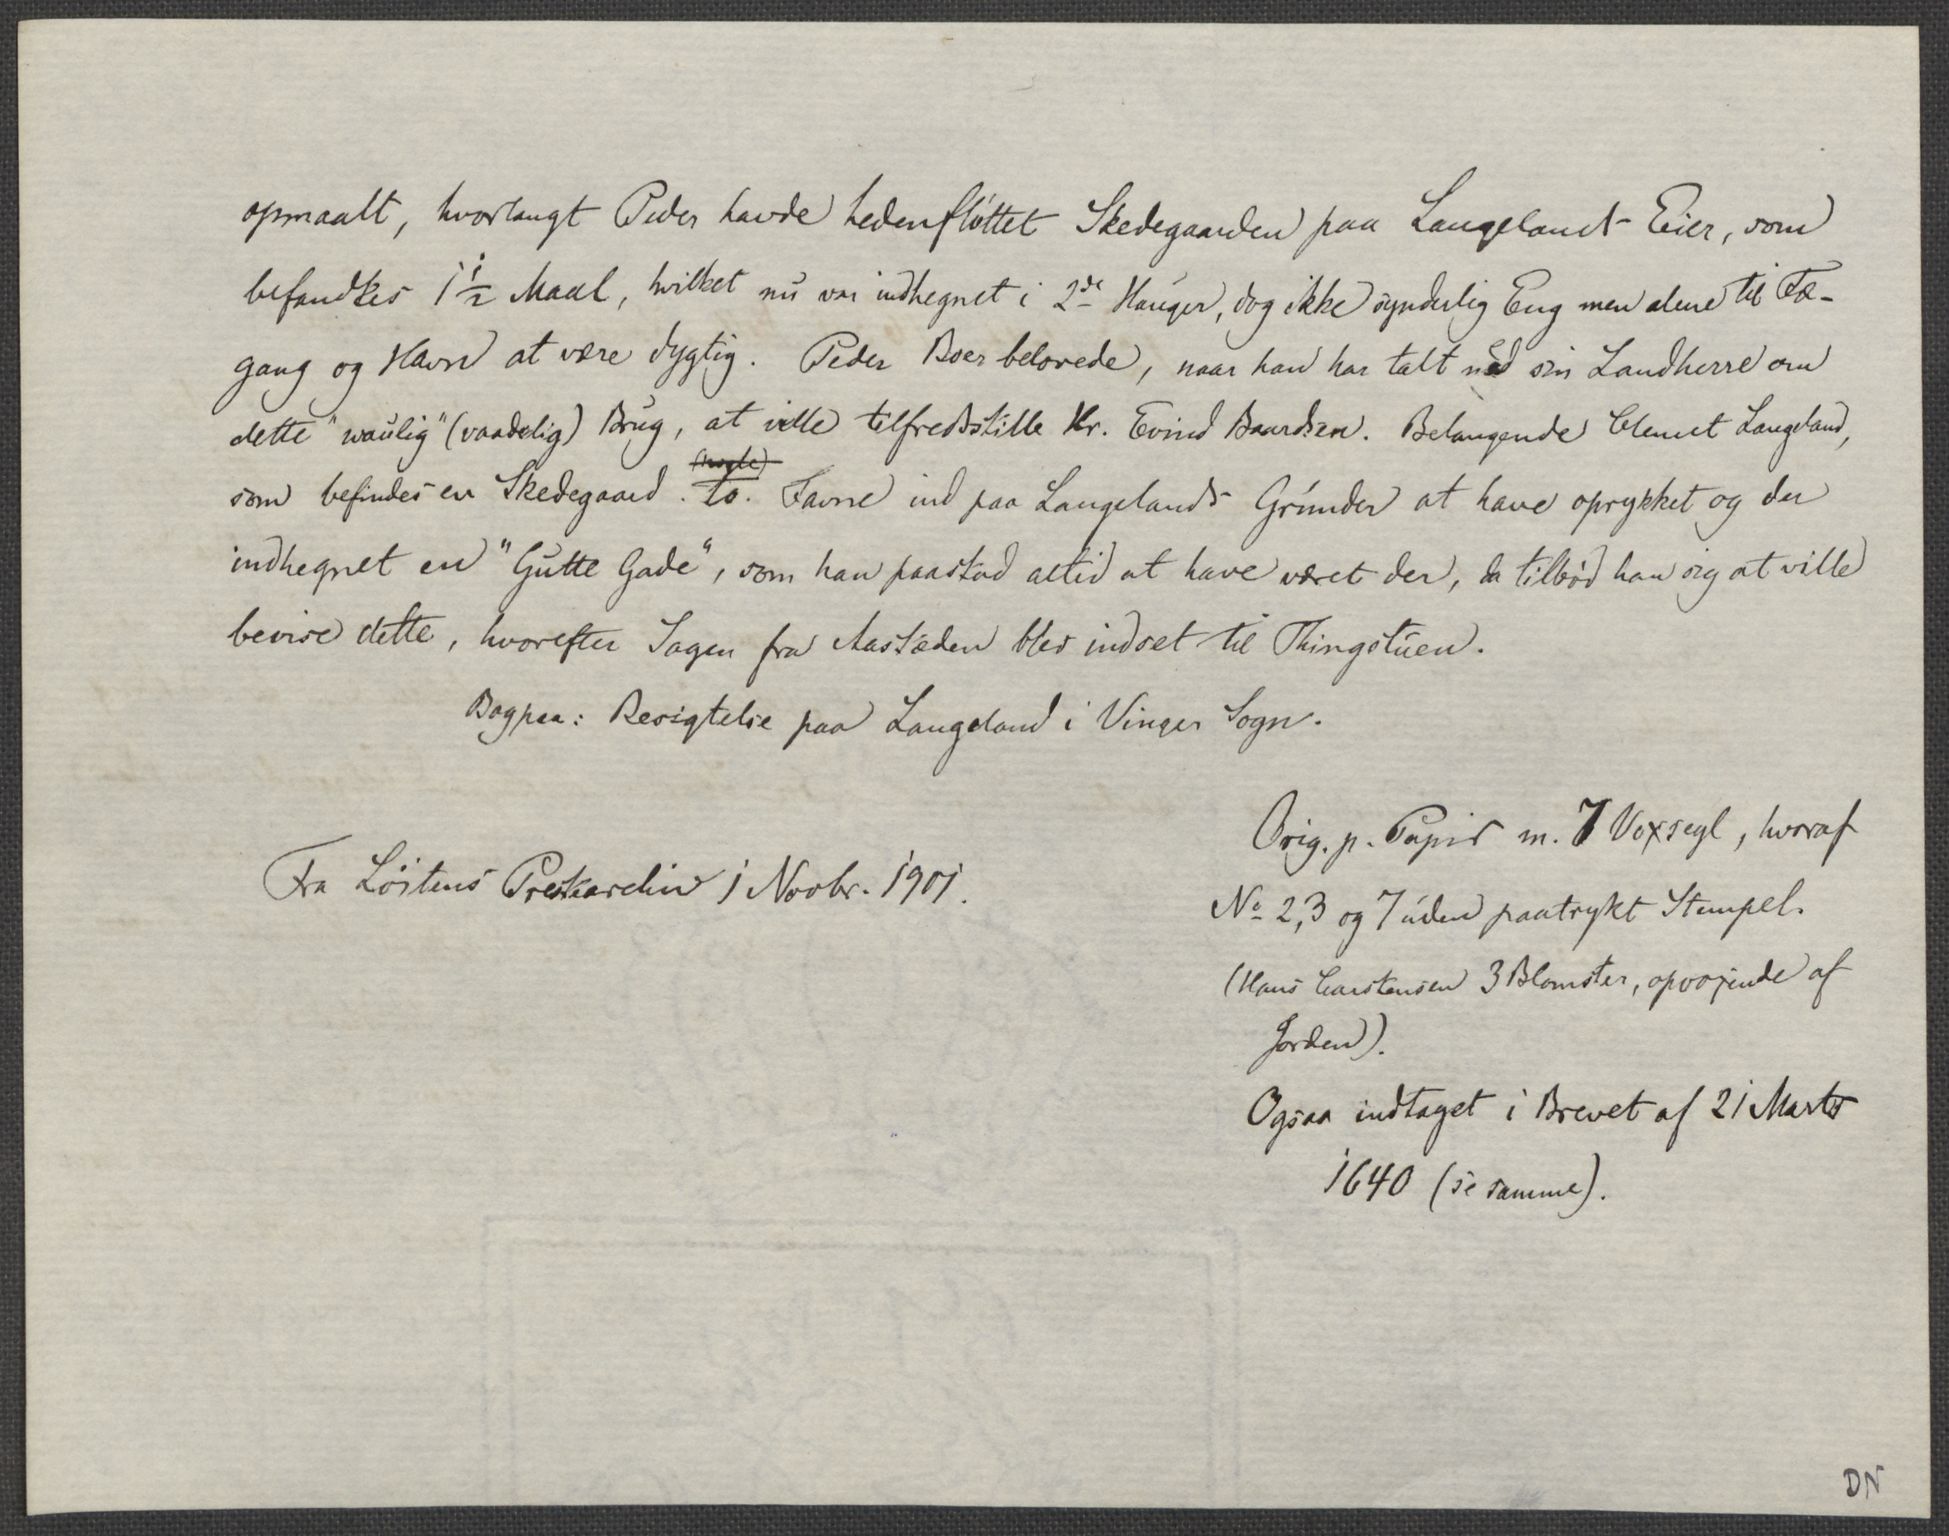 opmaalt, hvorlangt Peder havde hedenfløttet Skedegaarden paa Langelands Eier, som
befandtes 1 1/2 Maal, hvilket nu var indhegnet i 2de Hauger, dog ikke synderlig Eng men alene til Fæ-
gang og Havn at være dygtig. Peder Boer belovede, naar han har talt med sin Landherre om
dette "waulig" (vaadelig) Brug, at ville tilfredsstille Hr. Evind Baardsen. Belangende Clemet Langeland,
(nogle)
som befindes en Skedegaard . to . Favne ind paa Langelands Grunder at have oprykket og der
indhegnet en "Gutte Gade", som han paastod altid at have været der, da tilbød han sig at ville
bevise dette, hvorefter Sagen fra Aastæden blev indset til Thingstuen.
Bagpaa: Besigtelse paa Langeland i Vinger Sogn.
Orig. p. Papir m. 7 Voxsegl, hvoraf
Fra Løitens Prestearchiv 1 Novbr. 1901.
No 2, 3 og 7 uden paatrykt Stempel.
(Hans Carstensen 3 Blomster, opvoxende af
Jorden).
Ogsaa indtaget i Brevet af 21 Marts
1640 (se samme).
DN